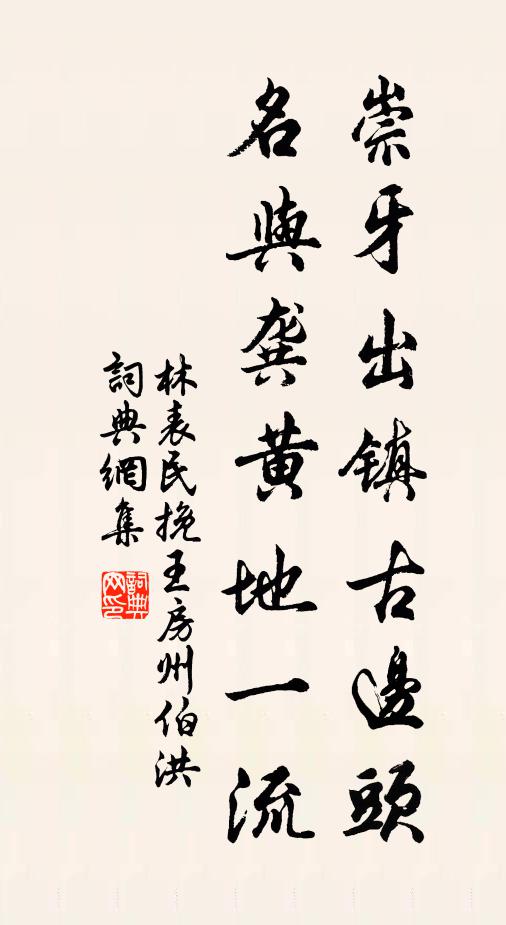 崇牙出镇古邊頭
名與龔黄地一流
林表民挽王房州伯洪
詞典網集
詞典网印